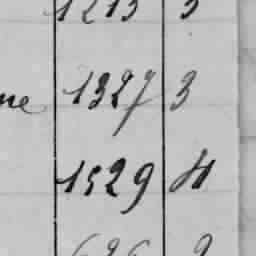 1213 3
ne 1327 3
1529 4